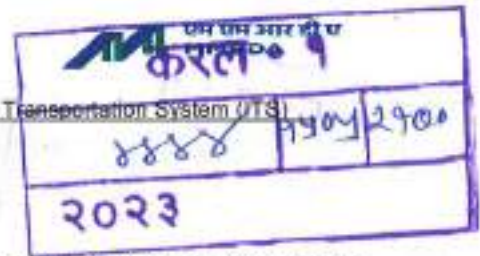 एम एम आर डी ए
करल १
Transportation System (ITS)
४४४४ १५०५ २१००
२०२३